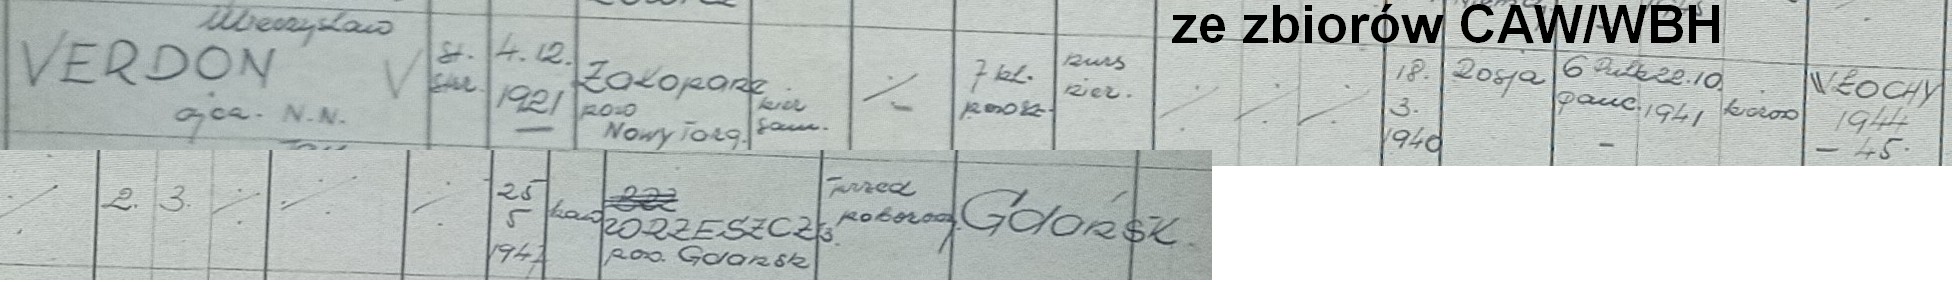 ze zbiorów CAW/WBH
Mieczysław
VERDON
ojca. N.N.
st.
4.12.
1921
Zakopane
pow
Nowy Targ.
kier
sam.
7 kl.
powsz.
kurs
kier.
18.
3.
1940
Rosja
6 Pułk
panc.
22.10.
1941
kierow
WŁOCHY
1944
- 45.
2. 3.
25
5
1947
kaw
WRZESZCZ
pow. Gdańsk
przed
poborowy
Gdańsk.